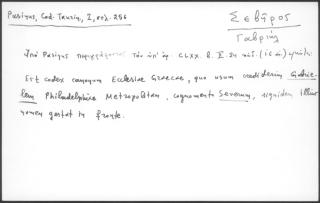 Pasinus, Cod. Taurin, I, σελ. 256
Σεβῆρος
Γαβριήλ
Pasinus περιγράφοντος τὸν ὑπ' ἀρ. CLXX. b. II. 24
Est codex canonum Ecclesiae Graecae, quo usum crediderim Gabrie-
lem Philadelphiae Metropolitam, cognomento Severum, siquidem illius
nomen gestat in fronte.